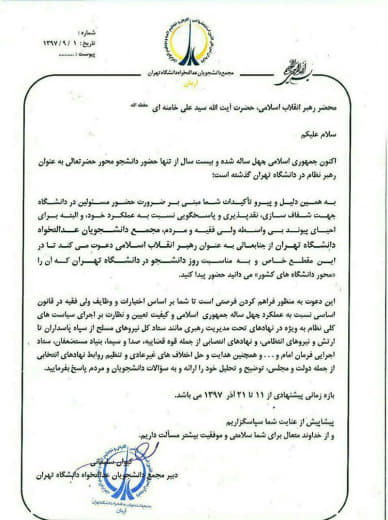 شماره :
تاریخ : ۱۳۹۷ / ۹ / ۱
پیوست : ......
مجمع دانشجویان عدالتخواه دانشگاه تهران
آرمان
محضر رهبر انقلاب اسلامی، حضرت آیت الله سید علی خامنه ای حفظه الله
سلام علیکم
اکنون جمهوری اسلامی چهل ساله شده و بیست سال از تنها حضور دانشجو محور حضرتعالی به عنوان
رهبر نظام در دانشگاه تهران گذشته است؛
به همین دلیل و پیرو تأکیدات شما مبنی بر ضرورت حضور مسئولین در دانشگاه
جهت شفاف سازی، نقدپذیری و پاسخگویی نسبت به عملکرد خود، و البته برای
احیای پیوند بی واسطه ولی فقیه و مردم، مجمع دانشجویان عدالتخواه
دانشگاه تهران از جنابعالی به عنوان رهبر انقلاب اسلامی دعوت می کند تا در
این مقطع خاص و به مناسبت روز دانشجو در دانشگاه تهران که آن را
«محور دانشگاه های کشور» می دانید حضور پیدا کنید.
این دعوت به منظور فراهم کردن فرصتی است تا شما بر اساس اختیارات و وظایف ولی فقیه در قانون
اساسی نسبت به عملکرد چهل ساله جمهوری اسلامی و کیفیت تعیین و نظارت بر اجرای سیاست های
کلی نظام به ویژه در نهادهای تحت مدیریت رهبری مانند ستاد کل نیروهای مسلح از سپاه پاسداران تا
ارتش و نیروهای انتظامی، و نهادهای انتصابی از جمله قوه قضاییه، صدا و سیما، بنیاد مستضعفان، ستاد
اجرایی فرمان امام و... و همچنین هدایت و حل اختلاف های غیرعادی و تنظیم روابط نهادهای انتخابی
از جمله دولت و مجلس، توضیح و تحلیل خود را ارائه و به سؤالات دانشجویان و مردم پاسخ بفرمایید.
بازه زمانی پیشنهادی از ۱۱ تا ۲۱ آذر ۱۳۹۷ می باشد.
پیشاپیش از عنایت شما سپاسگزاریم
و از خداوند متعال برای شما سلامتی و موفقیت بیشتر مسألت داریم.
دبیر مجمع دانشجویان عدالتخواه دانشگاه تهران